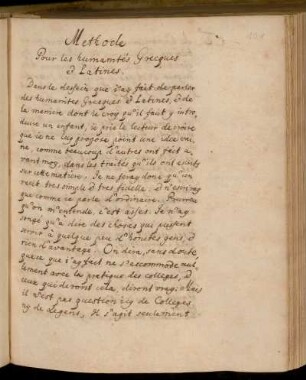 Methode
Pour les humanités Grecques
& Latines.
Dans le dessein que j'ay fait de parler
des humanités Grecques & Latines, & de
la maniere dont je croy qu'il faut y intro,
duire un enfant, je prie le lecteur de croire
que je ne luy propose point une idée vai,
ne, comme beaucoup d'autres ont fait a,
vant moy, dans les traités qu'ils ont écrits
sur cette matiere. Je ne feray donc qu'un
recit tres simple & tres fidelle. J'écriray
que comme je parle d'ordinaire. Pourveu
qu'on m'entende, c'est assés. Je n'ay
songé qu'a dire des choses qui pussent
servir a quelque peu d'honêtes gens, &
rien d'avantage. On dira, sans doute,
que ce que j'ay fait ne s'accommode nul,
lement avec la pratique des colleges, &
ceux qui diront cela, diront vray. Mais
il n'est pas question icy de Colleges,
ny de Regens, Il s'agit seulement